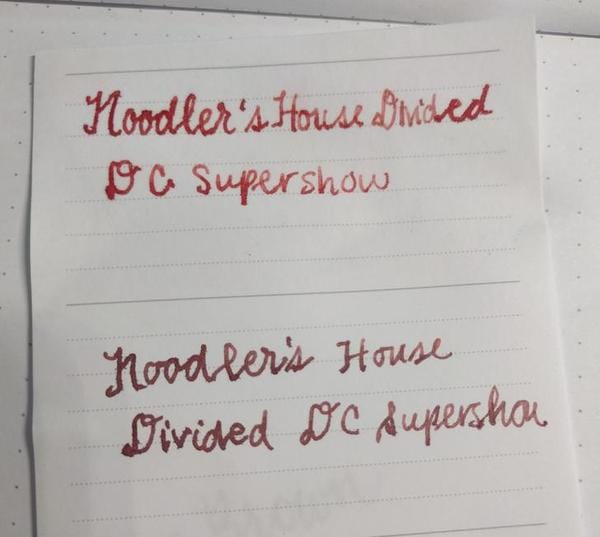 Noodler's House Divided
DC Supershow
Noodler's House
Divided DC Supershow
Brown